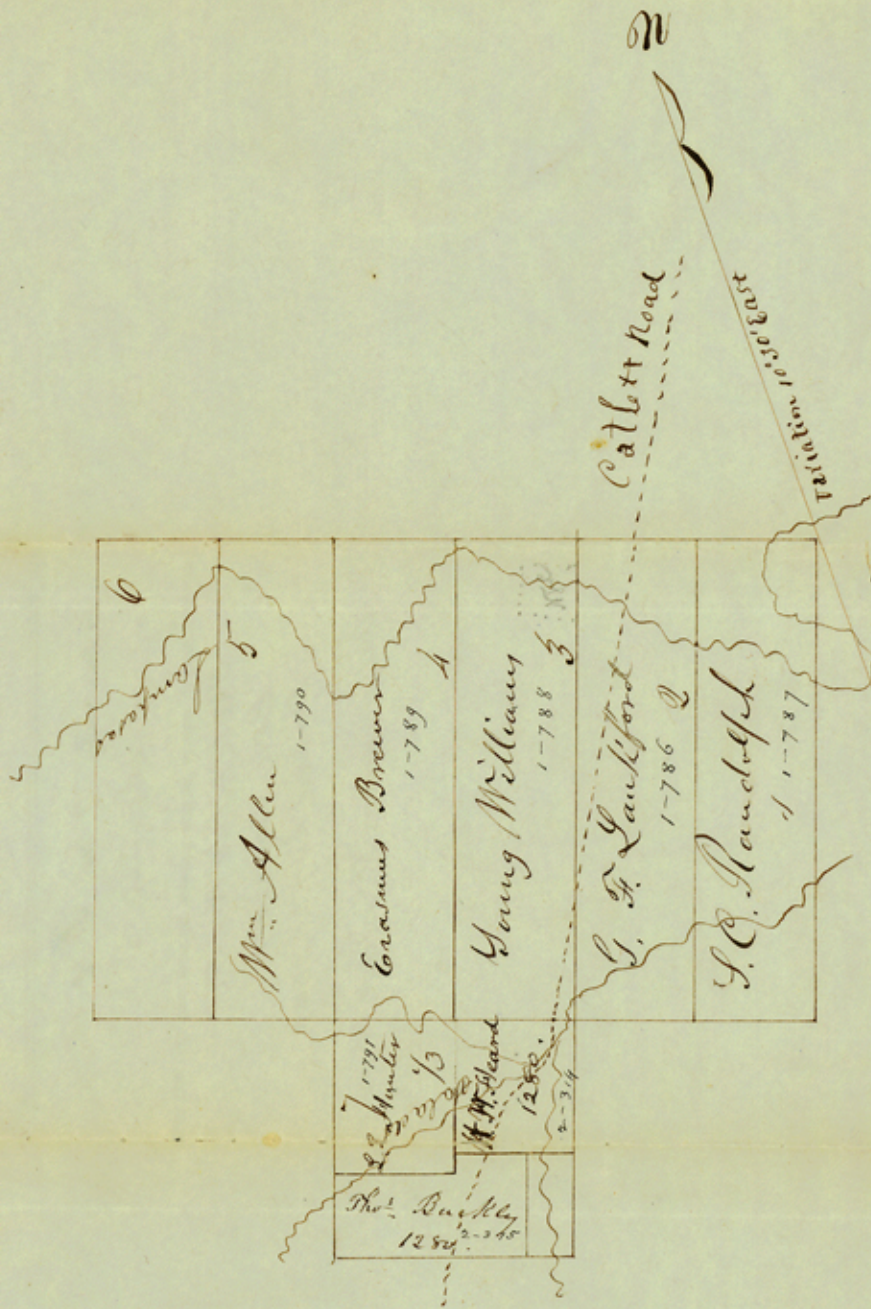 N
Variation 10°30' East
Catlett Road
6
Wm. Allen 5
1-790
Erasmus Brewer 4
1-789
Young Williams 3
1-788
G. F. Lankford 2
1-786
S. C. Randolph 1
1-787
7 1-791
Hunter
1/3
W. W. Heard
1280.
2-314
Thos. Buckley
1280. 2-345